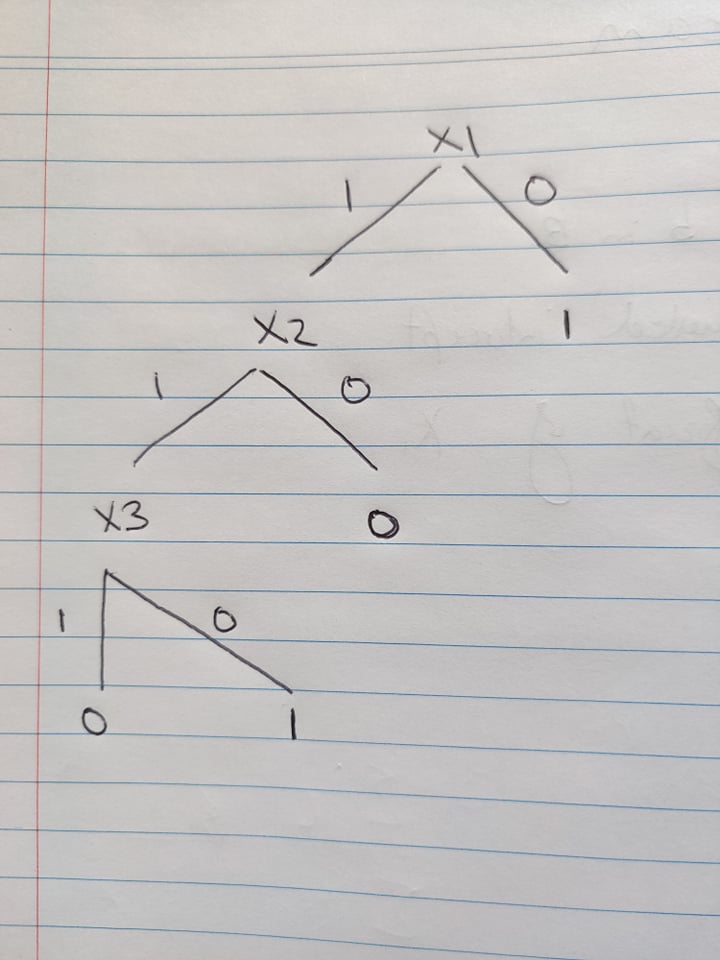 X1
1 0
X2 1
1 0
X3 0
1 0
0 1